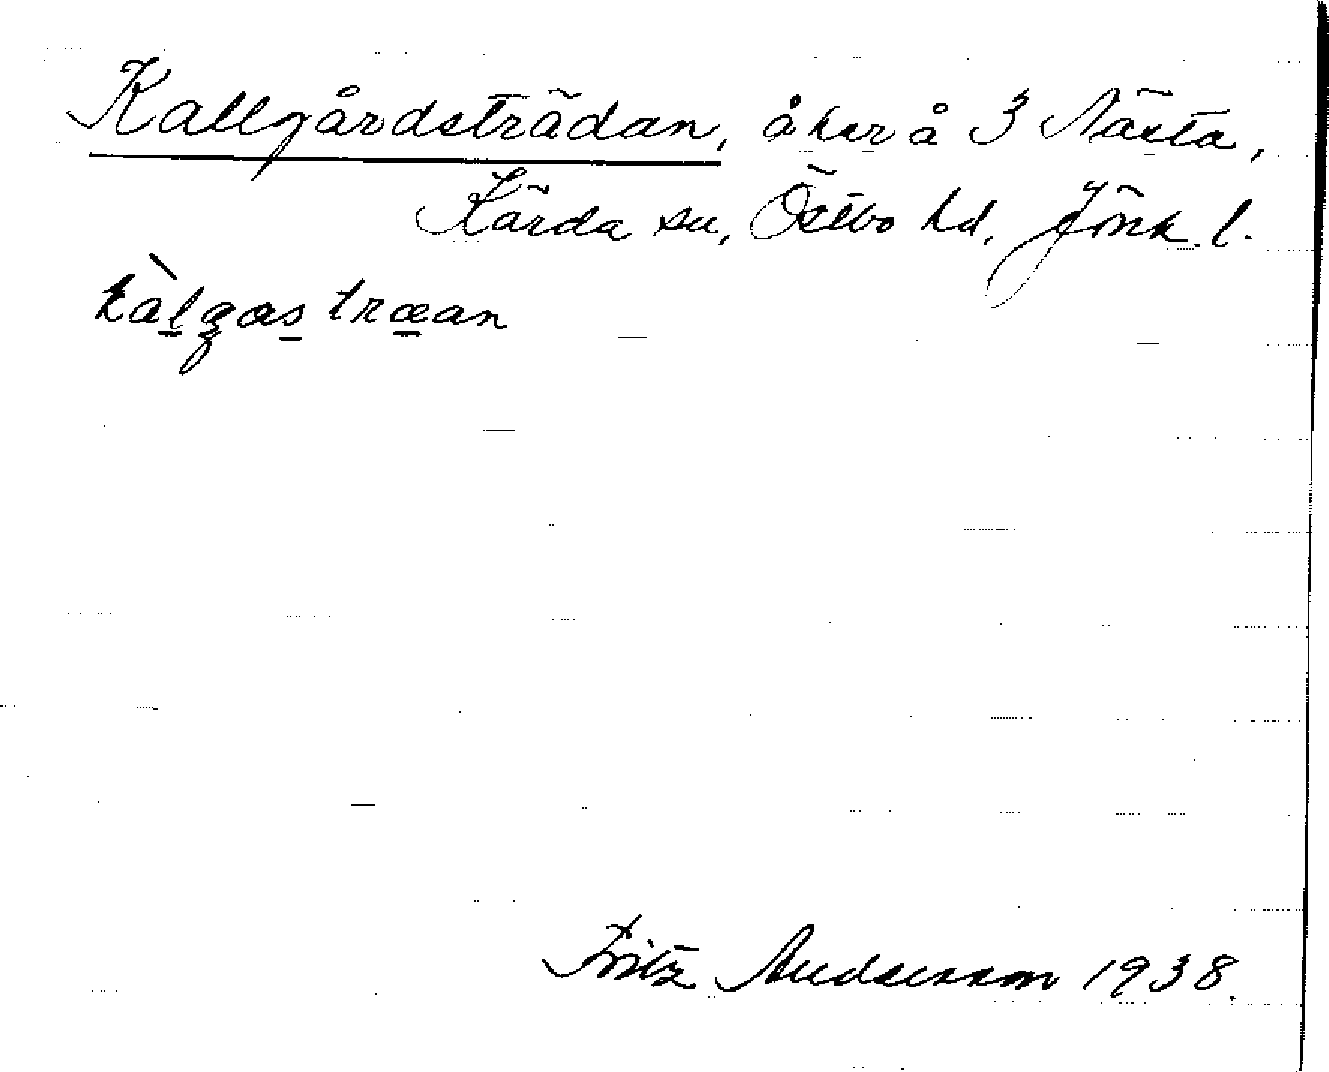 Kallgårdsträdan, åker å 3 Nästa,
Kärda sn, Östbo hd, Jönk. l.
kàlgas træan
Fritz Andersson 1938.